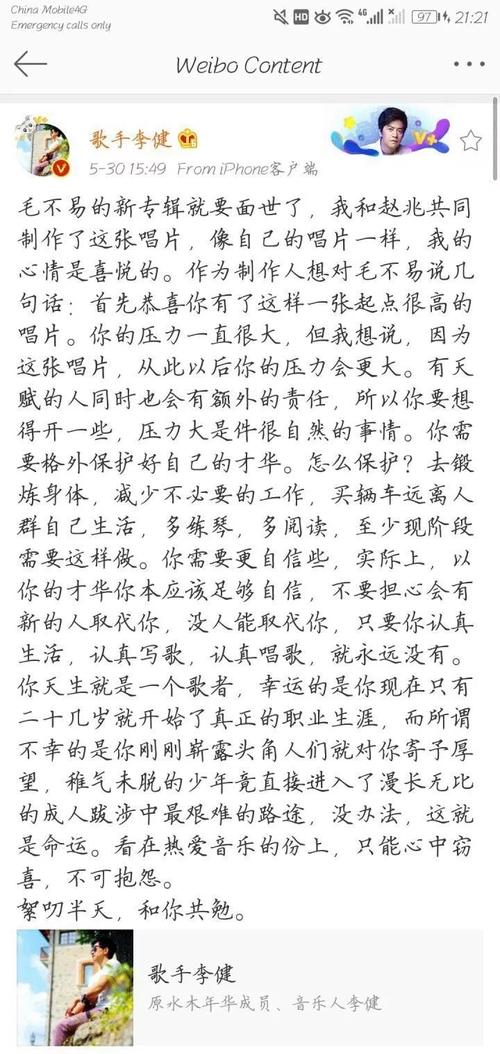 China Mobile4G
Emergency calls only
HD
4G
97
21:21
Weibo Content
歌手李健
5-30 15:49 From iPhone客户端
V+
毛不易的新专辑就要面世了，我和赵兆共同
制作了这张唱片，像自己的唱片一样，我的
心情是喜悦的。作为制作人想对毛不易说几
句话：首先恭喜你有了这样一张起点很高的
唱片。你的压力一直很大，但我想说，因为
这张唱片，从此以后你的压力会更大。有天
赋的人同时也会有额外的责任，所以你要想
得开一些，压力大是件很自然的事情。你需
要格外保护好自己的才华。怎么保护？去锻
炼身体，减少不必要的工作，买辆车远离人
群自己生活，多练琴，多阅读，至少现阶段
需要这样做。你需要更自信些，实际上，以
你的才华你本应该足够自信，不要担心会有
新的人取代你，没人能取代你，只要你认真
生活，认真写歌，认真唱歌，就永远没有。
你天生就是一个歌者，幸运的是你现在只有
二十几岁就开始了真正的职业生涯，而所谓
不幸的是你刚刚崭露头角人们就对你寄予厚
望，稚气未脱的少年竟直接进入了漫长无比
的成人跋涉中最艰难的路途，没办法，这就
是命运。看在热爱音乐的份上，只能心中窃
喜，不可抱怨。
絮叨半天，和你共勉。
歌手李健
原水木年华成员、音乐人李健